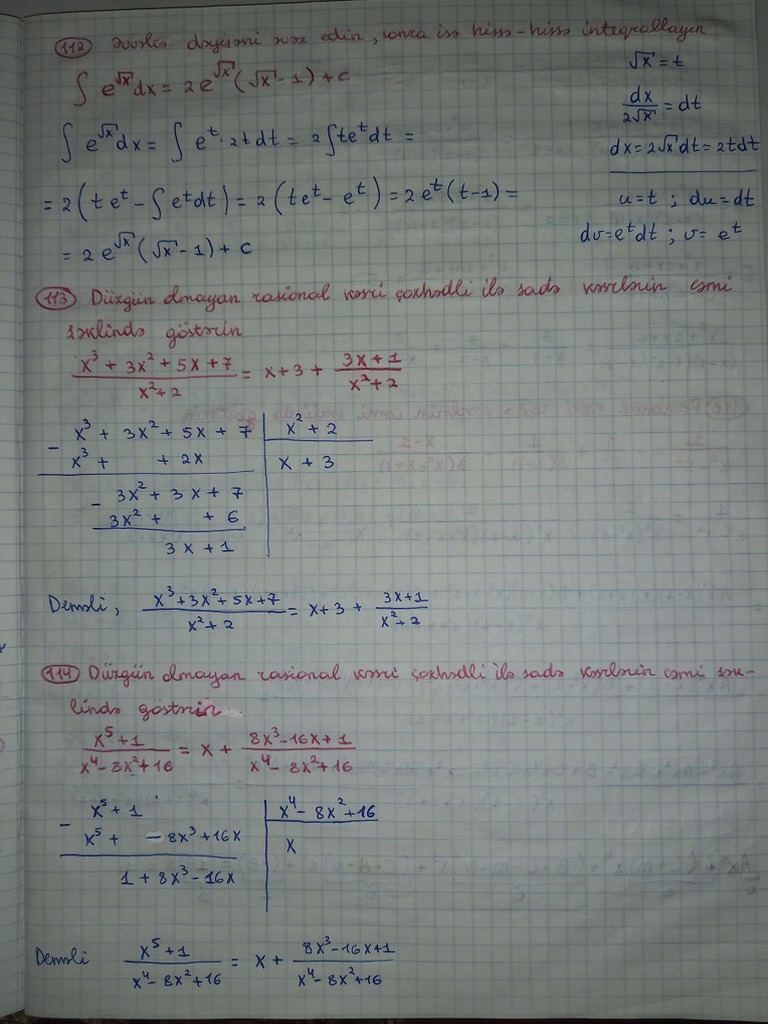 112 Əvvəlcə dəyişəni əvəz edin, sonra isə hissə-hissə inteqrallayın
∫ e^√x dx = 2e^√x (√x - 1) + c
√x = t
dx/2√x = dt
dx = 2√x dt = 2tdt
∫ e^√x dx = ∫ e^t · 2tdt = 2∫te^t dt =
u = t ; du = dt
dv = e^t dt ; v = e^t
= 2(te^t - ∫e^t dt) = 2(te^t - e^t) = 2e^t(t-1) =
= 2e^√x (√x - 1) + c
113 Düzgün olmayan rasional kəsri çoxhədli ilə sadə kəsrlərin cəmi
şəklində göstərin
(x³ + 3x² + 5x + 7)/(x² + 2) = x + 3 + (3x + 1)/(x² + 2)
- x³ + 3x² + 5x + 7 | x² + 2
x³ + + 2x | x + 3
- 3x² + 3x + 7
3x² + + 6
3x + 1
Deməli, (x³ + 3x² + 5x + 7)/(x² + 2) = x + 3 + (3x + 1)/(x² + 2)
114 Düzgün olmayan rasional kəsri çoxhədli ilə sadə kəsrlərin cəmi şək-
lində göstərin
(x⁵ + 1)/(x⁴ - 8x² + 16) = x + (8x³ - 16x + 1)/(x⁴ - 8x² + 16)
- x⁵ + 1 | x⁴ - 8x² + 16
x⁵ + - 8x³ + 16x | x
1 + 8x³ - 16x
Deməli (x⁵ + 1)/(x⁴ - 8x² + 16) = x + (8x³ - 16x + 1)/(x⁴ - 8x² + 16)